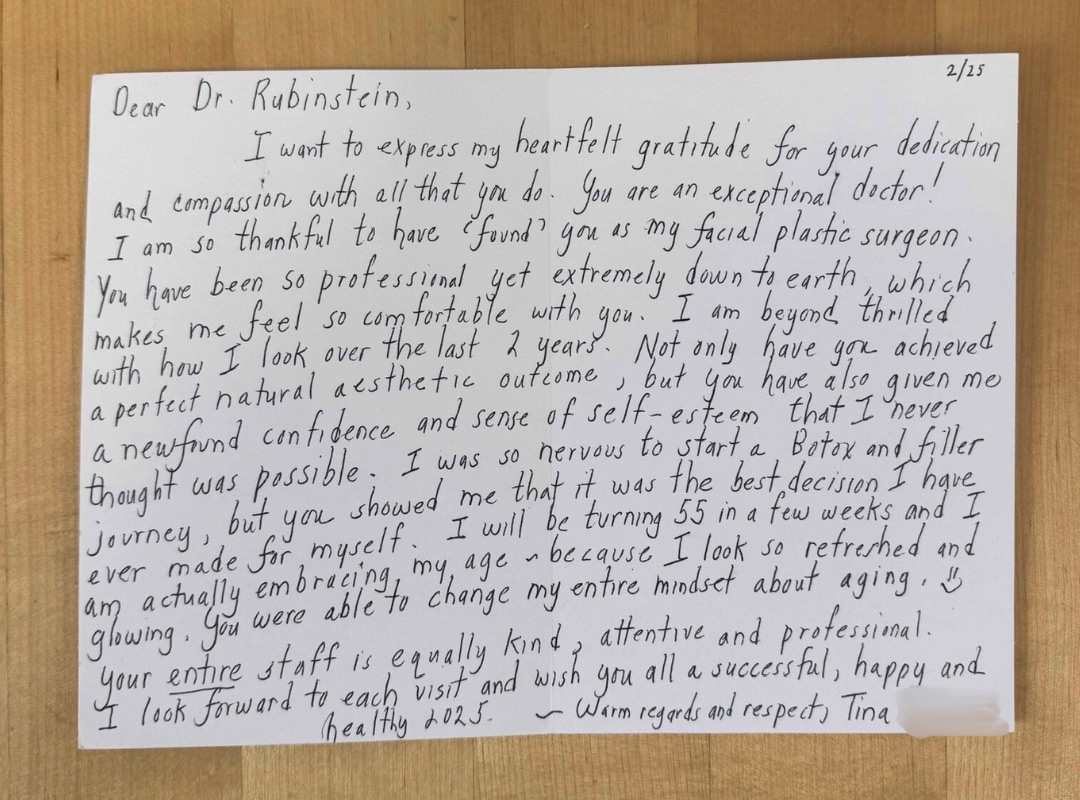 2/25
Dear Dr. Rubinstein,
I want to express my heartfelt gratitude for your dedication
and compassion with all that you do. You are an exceptional doctor!
I am so thankful to have "found" you as my facial plastic surgeon.
You have been so professional yet extremely down to earth, which
makes me feel so comfortable with you. I am beyond thrilled
with how I look over the last 2 years. Not only have you achieved
a perfect natural aesthetic outcome, but you have also given me
a newfound confidence and sense of self-esteem that I never
thought was possible. I was so nervous to start a Botox and filler
journey, but you showed me that it was the best decision I have
ever made for myself. I will be turning 55 in a few weeks and I
am actually embracing my age ~ because I look so refreshed and
glowing. You were able to change my entire mindset about aging. :)
Your entire staff is equally kind, attentive and professional.
I look forward to each visit and wish you all a successful, happy and
healthy 2025. ~ Warm regards and respect, Tina